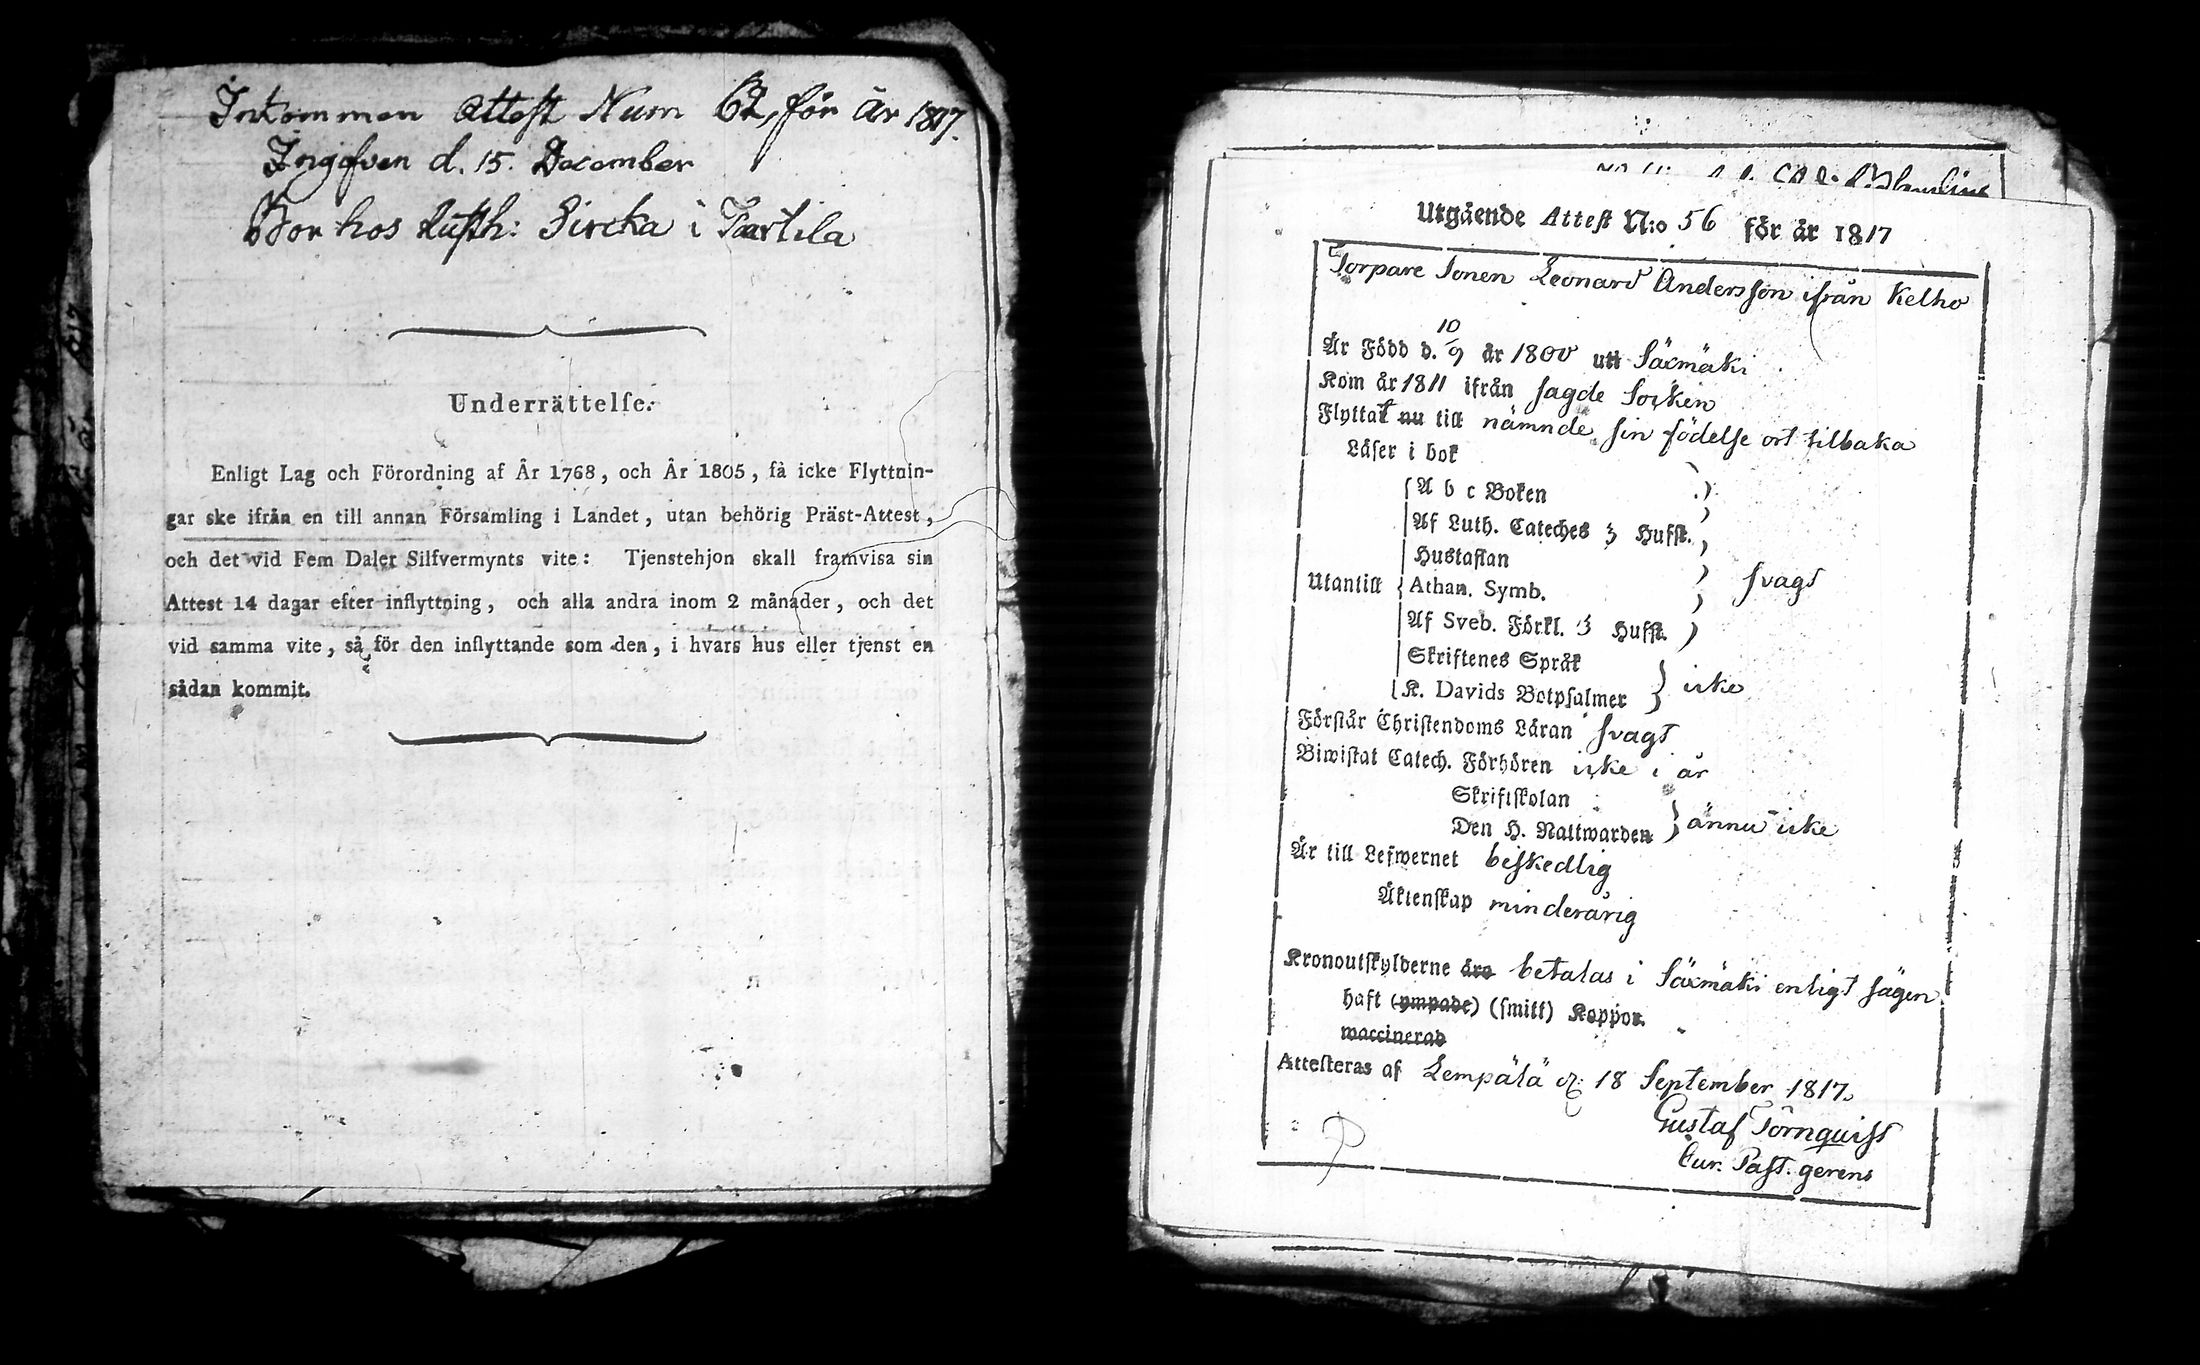 Inkommen Attest Num 62, för år 1817.
Ingifven d. 15. December
Bor hos Rusth: Sircka i Tarttila
Underrättelse.
Enligt Lag och Förordning af År 1768, och År 1805, få icke Flyttnin-
gar ske ifrån en till annan Församling i Landet, utan behörig Präst-Attest,
och det vid Fem Daler Silfvermynts vite: Tjenstehjon skall framvisa sin
Attest 14 dagar efter inflyttning, och alla andra inom 2 månader, och det
vid samma vite, så för den inflyttande som den, i hvars hus eller tjenst en
sådan kommit.
Utgående Attest N:o 56 för år 1817
Torpare Sonen Leonard Andersson ifrån Kelho
Är Född d. 10/9 år 1800 utt Säxmäki
Kom år 1811 ifrån sagde Socken
Flyttat nu till nämnde sin födelse ort tilbaka
Läser i bok
A b c Boken
Af Luth. Cateches 3 Hufst.
Hustaflan
Utantill Athan. Symb. svagt
Af Sveb. Förkl. 3 Hufst.
Skriftenes Språk
K. Davids Botpsalmer icke
Förstår Christendoms Läran svagt
Biwistat Catech. Förhören icke i år
Skriftskolan
Den H. Nattwarden ännu icke
Är till Lefwernet beskedlig
Äktenskap minderårig
Kronoutskylderne äro betalas i Säxmäki enligt sägen
haft (ympade) (smitt) Koppor.
waccinerad
Attesteras af Lempälä d. 18 September 1817.
Gustaf Törnquist
Cur. Past. gerens